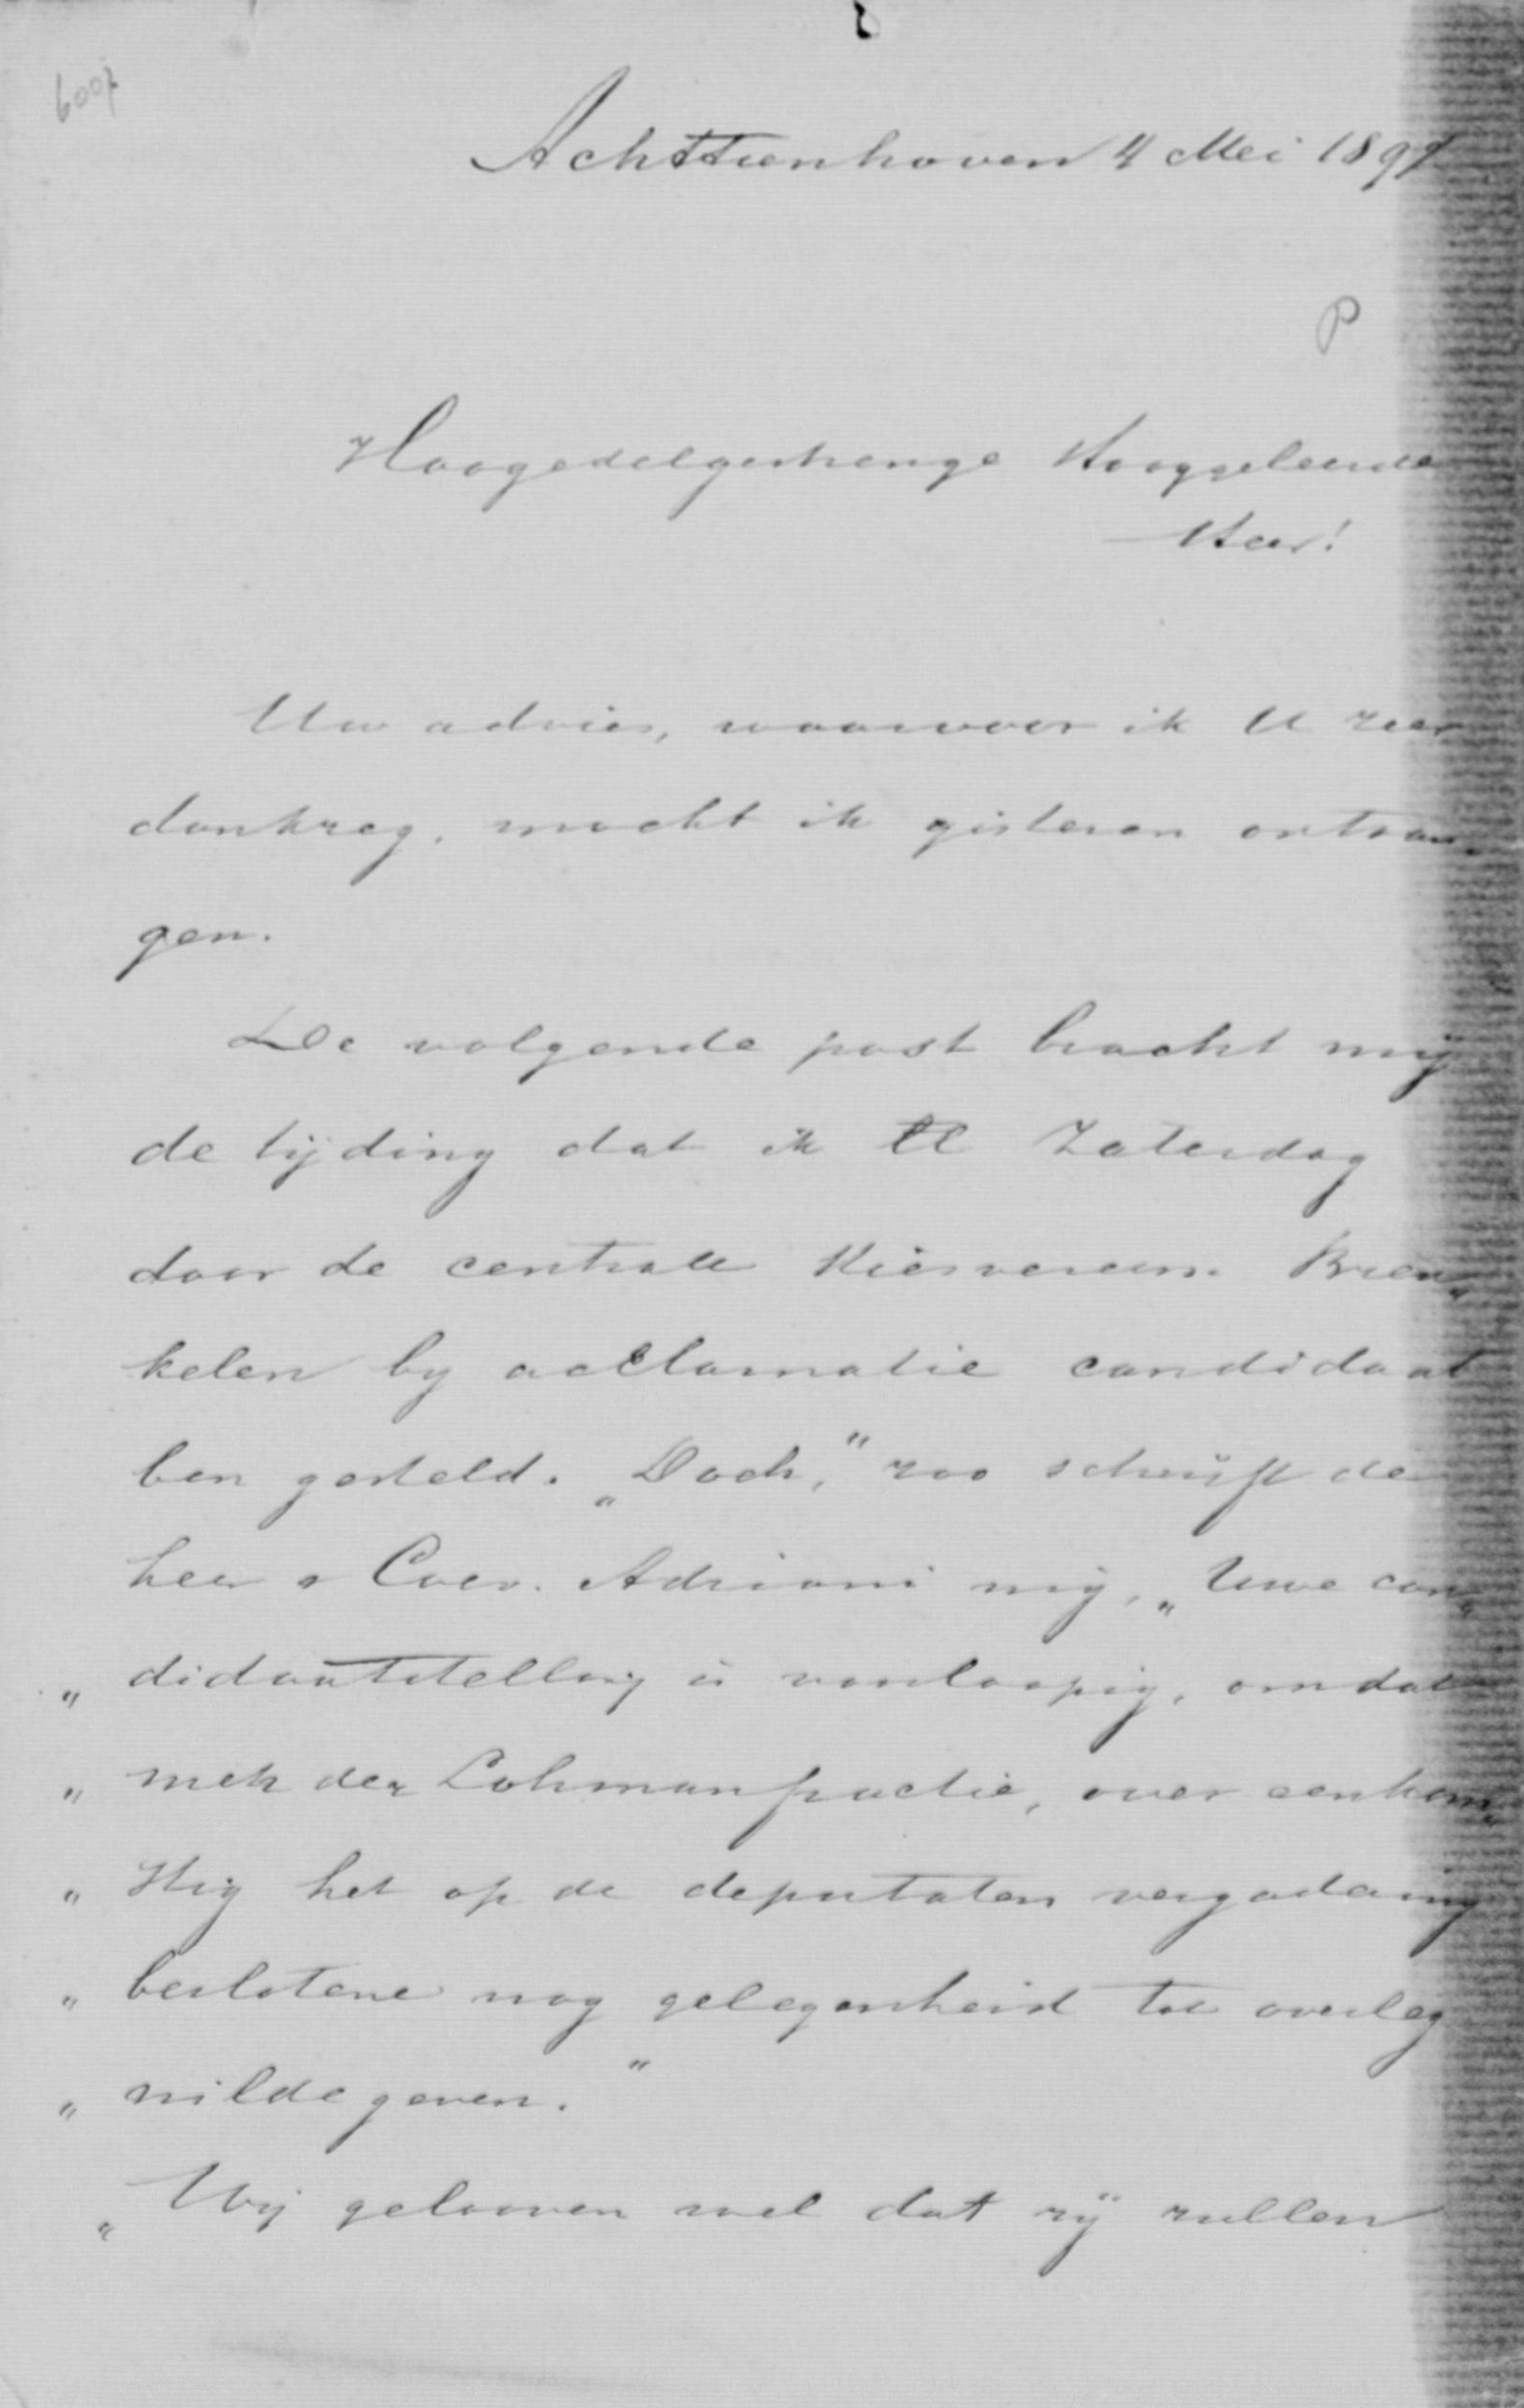 6007
Achttienhoven 4 Mei 1897
P
Hoogedelgestrenge Hooggeleerde
Heer!
Uw advies, waarvoor ik U zeer
dankzeg, mocht ik gisteren ontvan„
gen.
De volgende post bracht mij
de tijding dat ik Zaterdag
door de centrale Kiesvereen. Breu„
kelen by acclamatie candidaat
ben gesteld. „Doch,” zoo schrijft de
heer Coev. Adriani mij, „Uwe can„
„ didaatstelling is voorloopig, omdat
„ men der Lohmanfractie, overeenkom„
„ stig het op de deputaten vergadering
„ beslotene nog gelegenheid tot overleg
„ wilde geven.”
„ Wij gelooven wel dat zij zullen